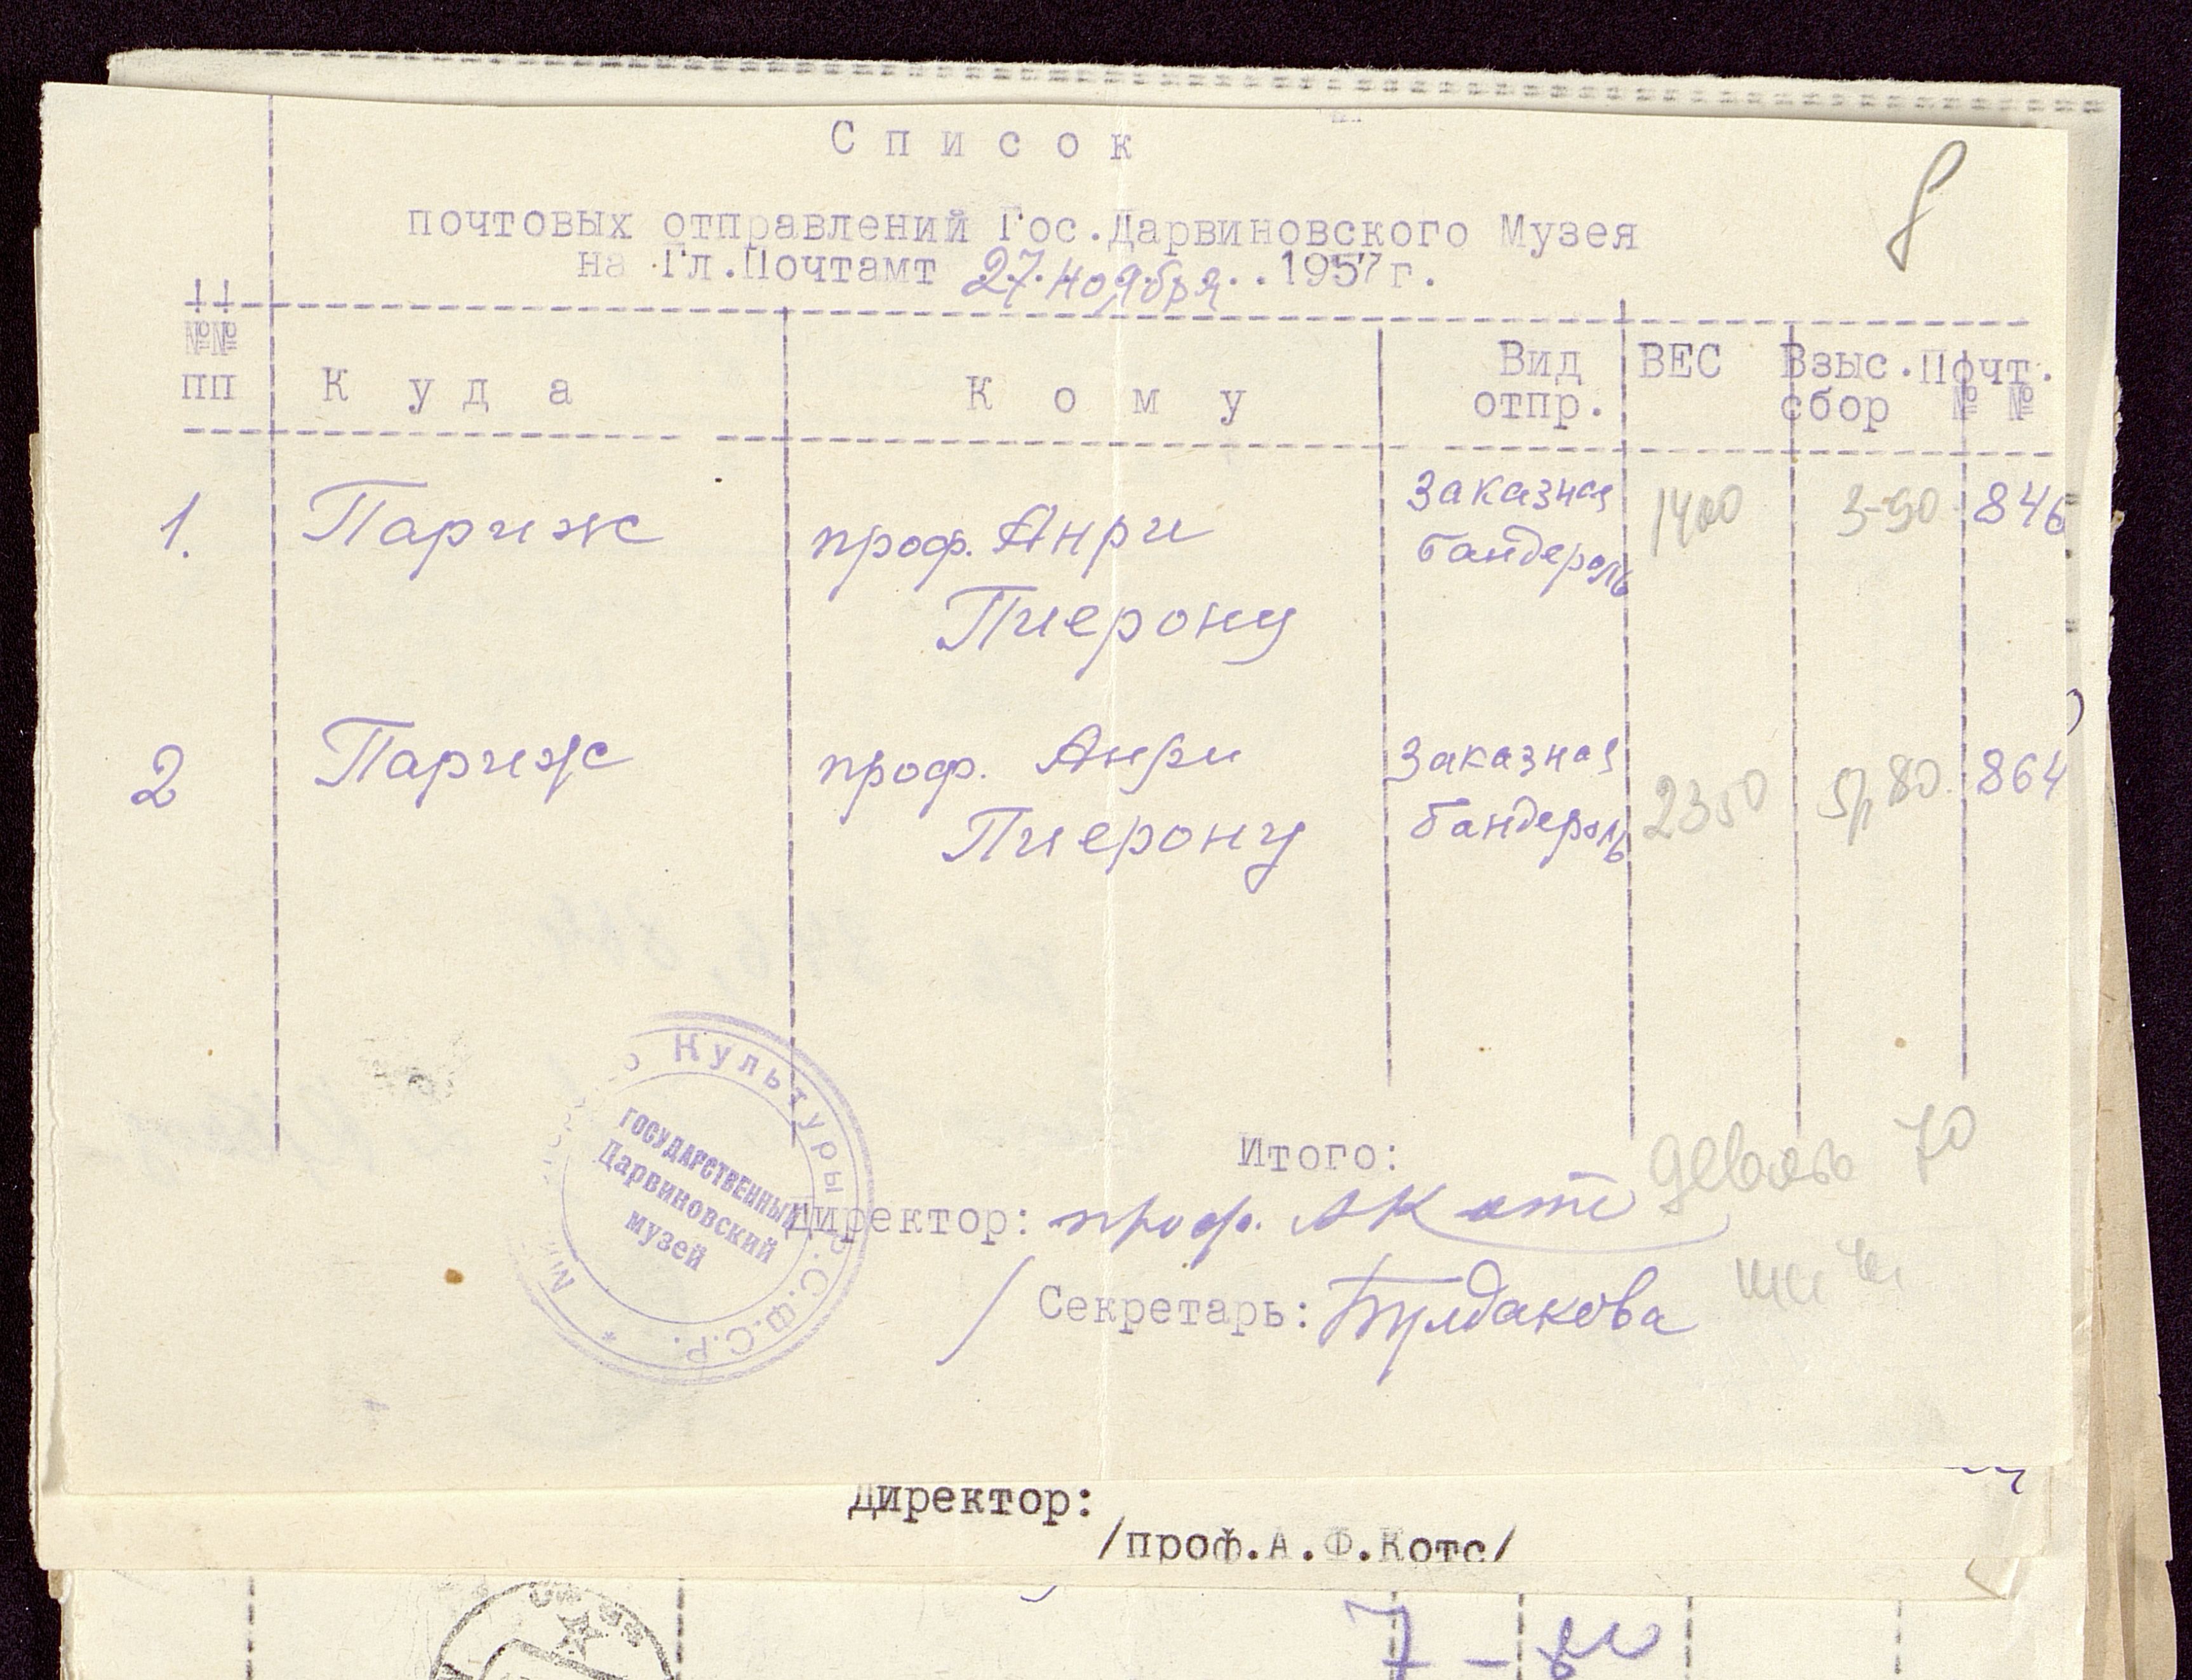 Список
8
почтовых отправлений Гос.Дарвиновского Музея
на Гл.Почтамт 27.ноября..1957г.
№№ пп Куда Кому Вид отпр. ВЕС Взыс. сбор Почт. № №
1. Париж проф. Анри Пиерону Заказная бандероль 1400 3-90 846
2 Париж проф. Анри Пиерону Заказная бандероль 2350 5р 80. 864
Итого: девять 70
Директор: проф. АКотс
/ Секретарь: Булдакова
Культуры Р.С.Ф.С.Р. *
ГОСУДАРСТВЕННЫЙ
Дарвиновский
музей
Директор:
/проф.А.Ф.Котс/
7 -